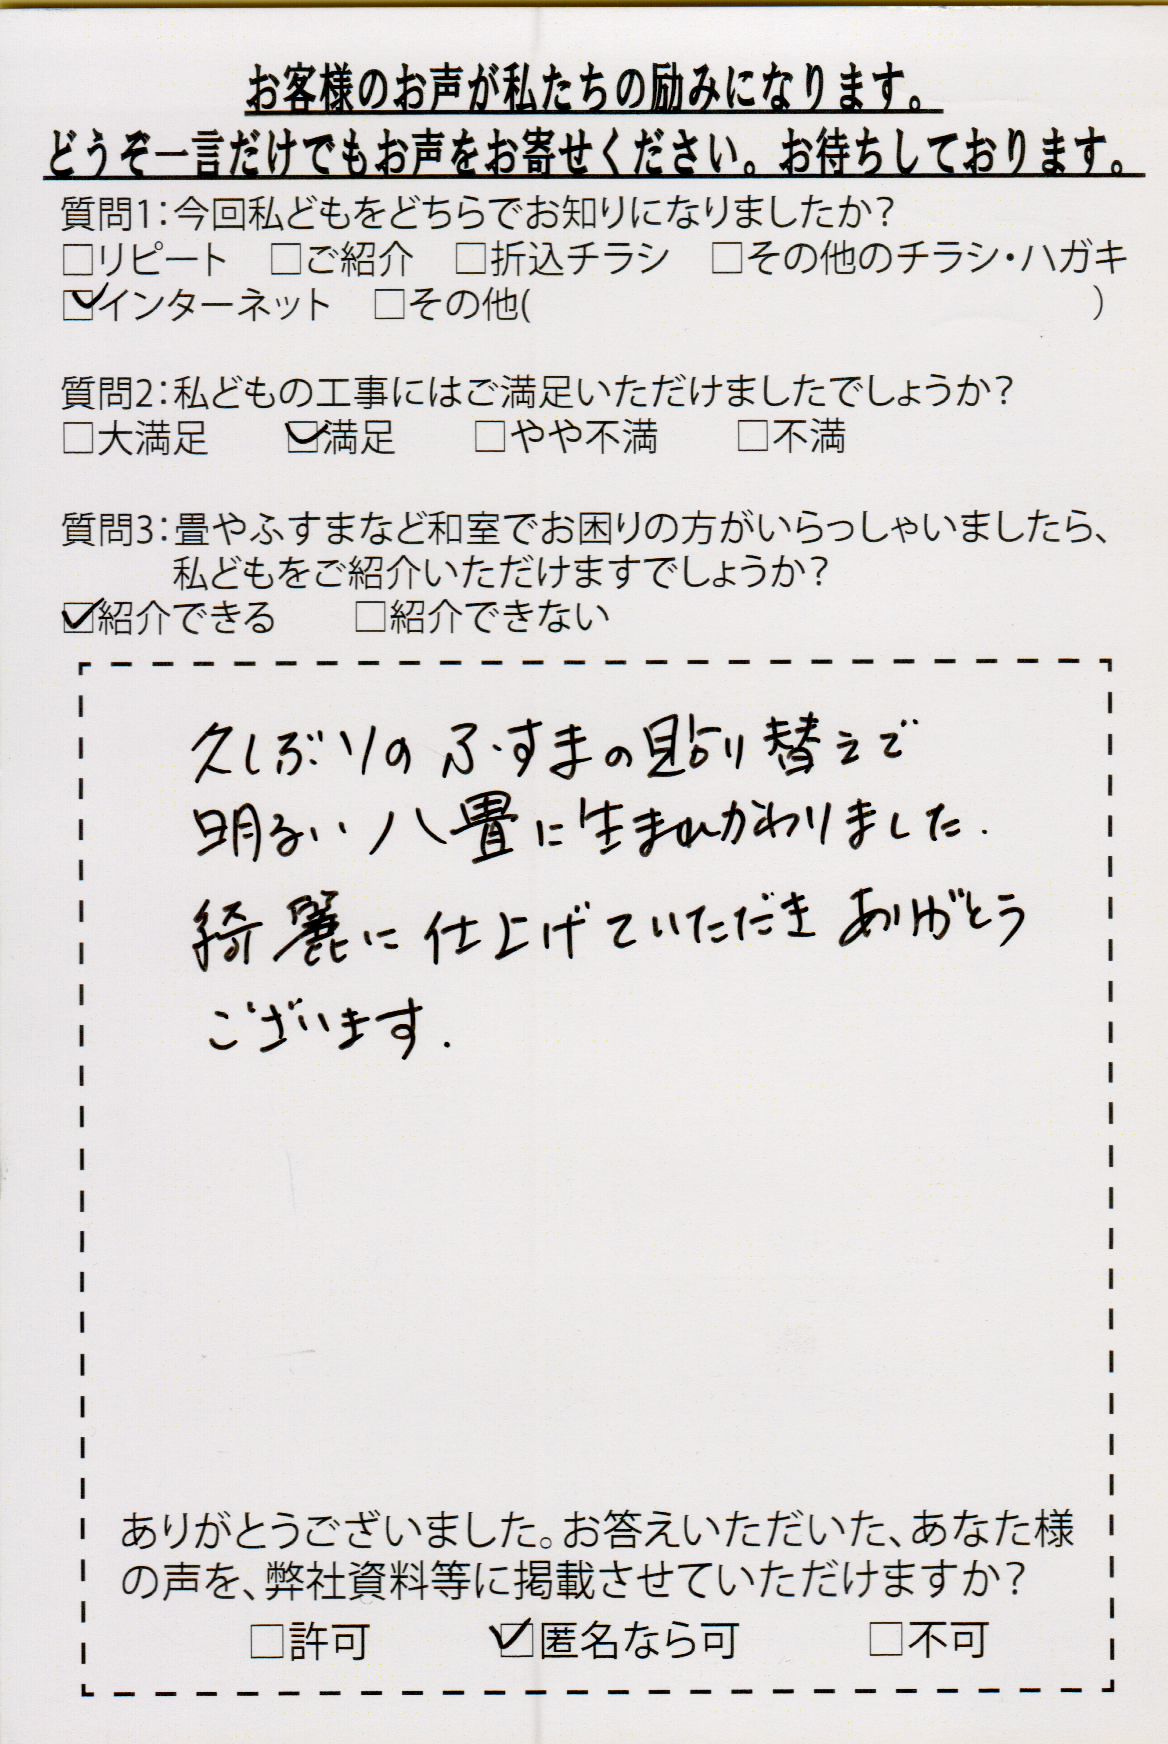 お客様のお声が私たちの励みになります。
どうぞ一言だけでもお声をお寄せください。お待ちしております。
質問1：今回私どもをどちらでお知りになりましたか？
□リピート　□ご紹介　□折込チラシ　□その他のチラシ・ハガキ
☑インターネット　□その他(　　　　　)
質問2：私どもの工事にはご満足いただけましたでしょうか？
□大満足　☑満足　□やや不満　□不満
質問3：畳やふすまなど和室でお困りの方がいらっしゃいましたら、
私どもをご紹介いただけますでしょうか？
☑紹介できる　□紹介できない
久しぶりのふすまの貼り替えで
明るい八畳に生まれかわりました.
綺麗に仕上げていただきありがとう
ございます.
ありがとうございました。お答えいただいた、あなた様
の声を、弊社資料等に掲載させていただけますか？
□許可　☑匿名なら可　□不可